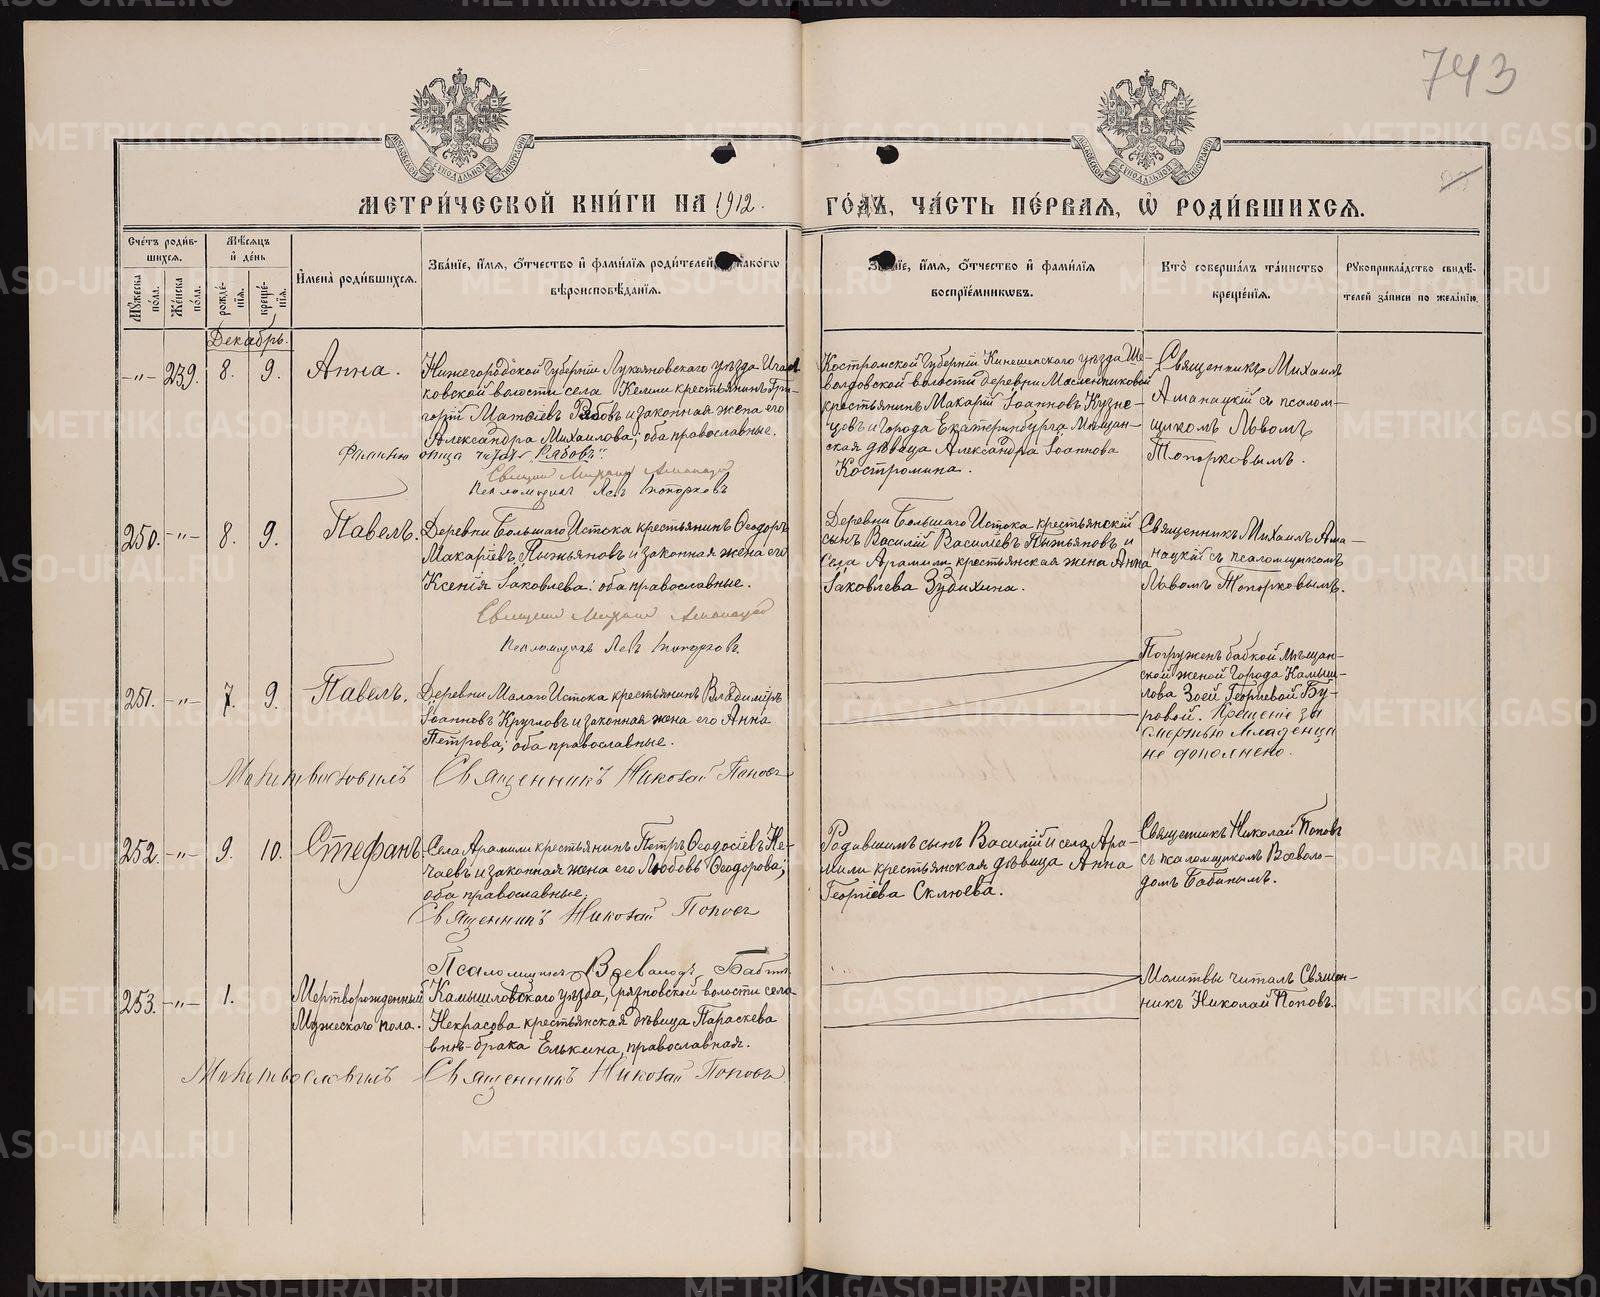 743
МОСКОВСКОЙ СѴНОДАЛЬНОЙ ТИПОГРАФІИ
МОСКОВСКОЙ СѴНОДАЛЬНОЙ ТИПОГРАФІИ
МЕТРИ́ЧЕСКОЙ КНИ́ГИ НА 1912. ГО́ДЪ, ЧА́СТЬ ПЕ́РВАЯ, Ѽ РОДИ́ВШИХСЯ.
Сче́тъ роди́в-
шихся.
Мꙋ́жеска по́ла.
Же́нска по́ла.
Мѣ́сяцъ
и҆ де́нь
рожде́-
нїя.
креще́-
нїя.
И҆мена̀ роди́вшихся.
Зва́нїе, и҆́мя, ѻ҆́тчество и҆ фами́лїя роди́телей,
вѣроисповѣ́данїя.
и҆́мя, ѻ҆́тчество и҆ фами́лїя
воспрїе́мниковъ.
Кто̀ соверша́лъ та́инство
креще́нїя.
Рꙋкоприкла́дство свидѣ́-
телей за́писи по жела́нїю.
Декабрь.
-„- 239. 8. 9. Анна.
Нижегородской Губерніи Лукояновскаго уѣзда
ковской волости села Кемли крестьянинъ Гри-
горій Матѳіевъ Рябовъ и законная жена его
Александра Михаилова; оба православные.
Фамилію отца читать „Рябовъ“
Свящ. Михаилъ Аманацкій
Псаломщикъ Левъ Топорковъ
Костромской Губерніи Кинешемскаго уѣзда Ше-
волдовской волости деревни Масленниковой
крестьянинъ Макарій Іоанновъ Кузне-
цовъ и города Екатеринбурга Мѣщан-
ская дѣвица Александра Іоаннова
Костромина.
Священникъ Михаилъ
Аманацкій съ псалом-
щикомъ Львомъ
Топорковымъ.
250. -„- 8. 9. Павелъ.
Деревни Большаго Истока крестьянинъ Ѳеодоръ
Макаріевъ Пыжьяновъ и законная жена его
Ксенія Іаковлева: оба православные.
Священникъ Михаилъ Аманацкій
Псаломщикъ Левъ Топорковъ.
Деревни Большаго Истока крестьянскій
сынъ Василій Василіевъ Пыжьяновъ и
Села Арамили крестьянская жена Анна
Іаковлева Зубихина.
Священникъ Михаилъ Ама-
нацкій съ псаломщикомъ
Львомъ Топорковымъ.
251. -„- 7. 9. Павелъ.
Деревни Малаго Истока крестьянинъ Владиміръ
Іоанновъ Кругловъ и законная жена его Анна
Петрова; оба православные.
Священникъ Николай Поповъ
Погруженъ бабкой Мѣщан-
ской женой Города Камыш-
лова Зоей Георгіевой Бу-
ровой. Крещеніе за
смертью младенца
не дополнено.
252. -„- 9. 10. Стефанъ.
Села Арамили крестьянинъ Петръ Ѳеодосіевъ Не-
чаевъ и законная жена его Любовь Ѳеодорова;
оба православные.
Священникъ Николай Поповъ
Псаломщикъ Всеволодъ Бабинъ
Родившимъ сынъ Василій и села Ара-
мили крестьянская дѣвица Анна
Георгіева Склюева.
Священникъ Николай Поповъ
съ псаломщикомъ Всеволо-
домъ Бабинымъ.
253. -„- 1. Мертворожденный
Мужескаго пола.
Камышловскаго уѣзда, Грязновской волости села
Некрасова крестьянская дѣвица Параскева
внѣ-брака Елькина, православная.
Священникъ Николай Поповъ
Молитвы читалъ Священ-
никъ Николай Поповъ.
METRIKI.GASO-URAL.RU